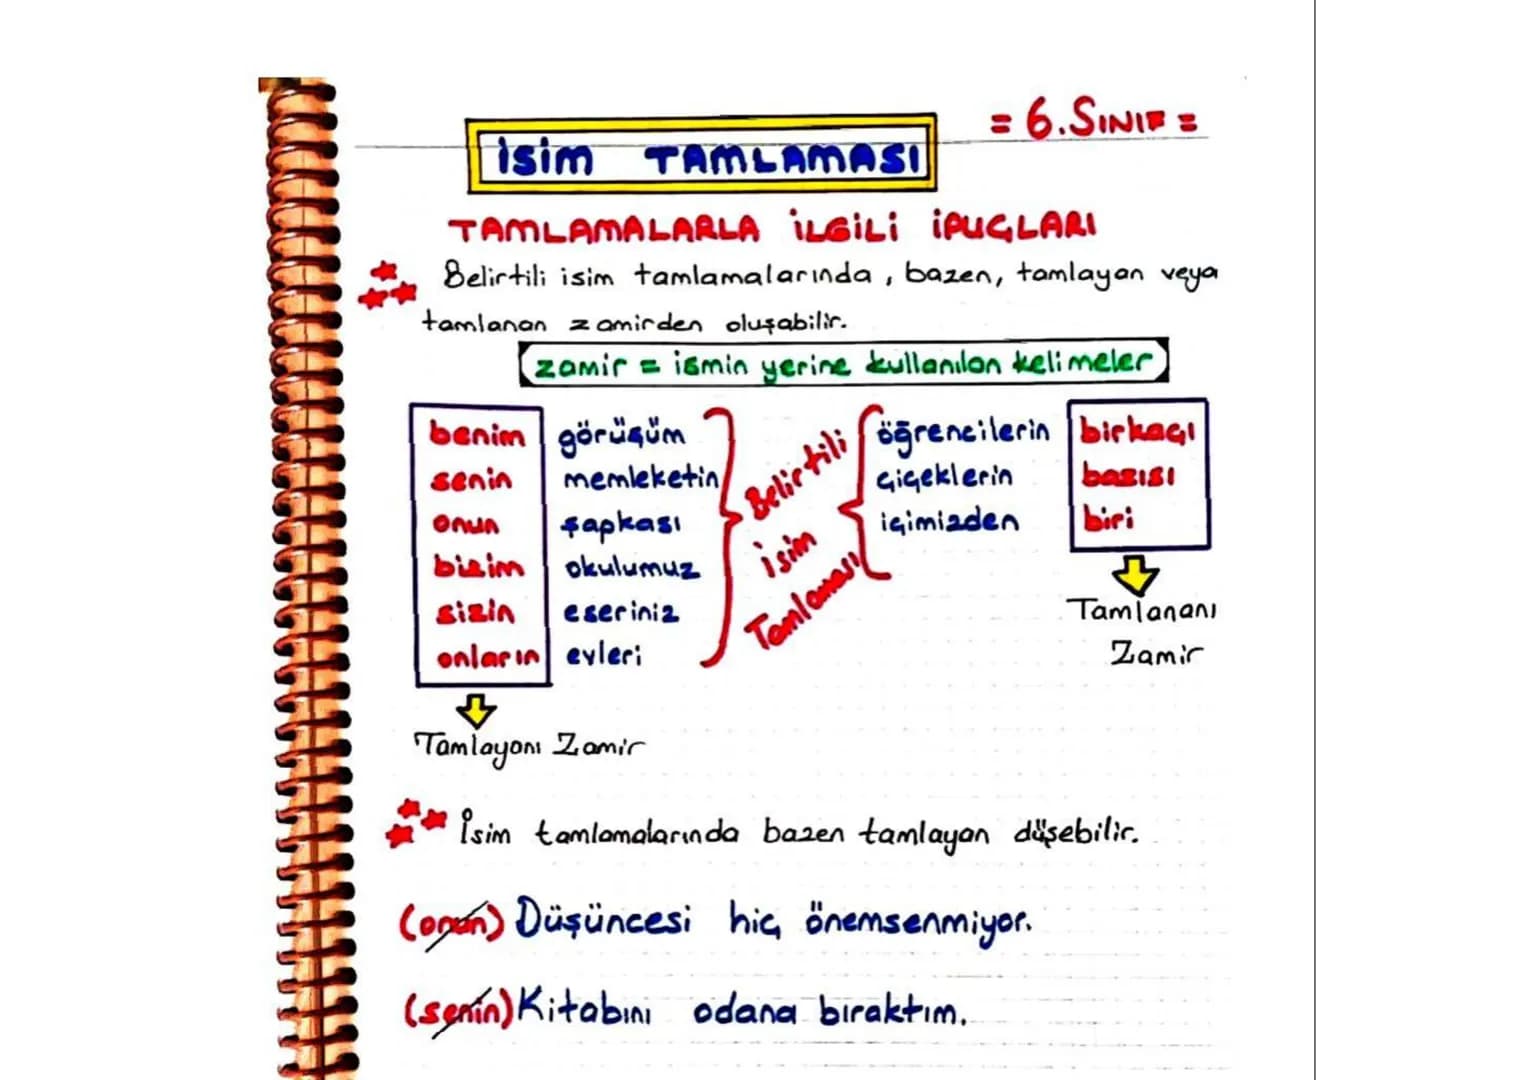 = 6.SINIF =
İSİM TAMLAMASI
TAMLAMALARLA İLGİLİ İPUÇLARI
Belirtili isim tamlamalarında, bazen, tamlayan veya
tamlanan zamirden oluşabilir.
zamir = ismin yerine kullanılan kelimeler
benim görüşüm
senin memleketin
onun şapkası
bizim okulumuz
sizin eseriniz
onların evleri
Tamlayanı Zamir
Belirtili
İsim
Tamlaması
öğrencilerin birkaçı
çiçeklerin bazısı
içimizden biri
Tamlananı
Zamir
İsim tamlamalarında bazen tamlayan düşebilir.
(onun) Düşüncesi hiç önemsenmiyor.
(senin) Kitabını odana bıraktım.